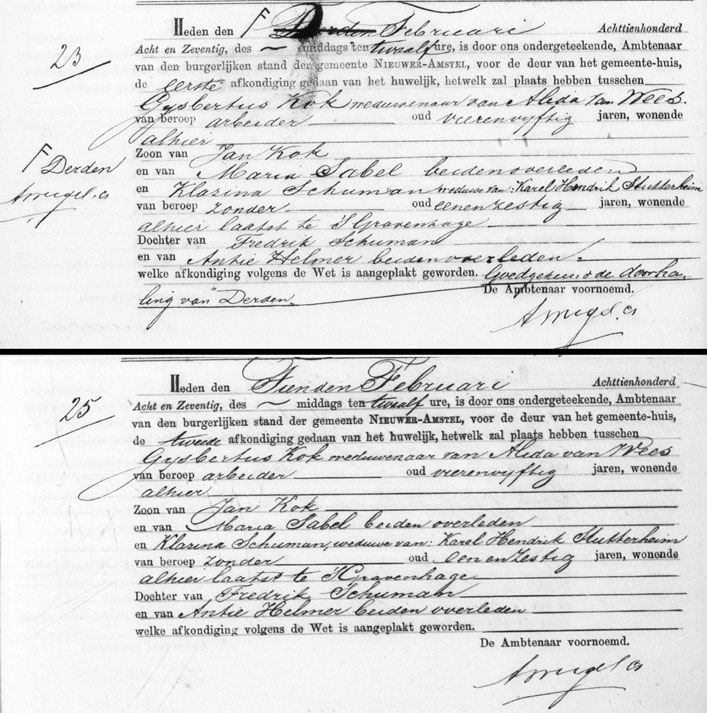 23
Heden den Derden Februari Achttienhonderd
Acht en Zeventig, des ~ middags ten twaalf ure, is door ons ondergeteekende, Ambtenaar
van den burgerlijken stand der gemeente NIEUWER-AMSTEL, voor de deur van het gemeente-huis,
de eerste afkondiging gedaan van het huwelijk, hetwelk zal plaats hebben tusschen
Gysbertus Kok weduwenaar van Alida van Wees.
van beroep arbeider oud vierenvyftig jaren, wonende
alhier
Zoon van Jan Kok
en van Maria Sabel beiden overleden
en Klarina Schuman weduwe van: Karel Hendrik Stutterheim
van beroep zonder oud eenenzestig jaren, wonende
alhier laatst te 'S Gravenhage
Dochter van Fredrik Schuman
en van Antie Helmer beiden overleden.
welke afkondiging volgens de Wet is aangeplakt geworden. Goedgekeurd de doorha-
ling van "Derden.
De Ambtenaar voornoemd.
Derden
25
Heden den Tienden Februari Achttienhonderd
Acht en Zeventig, des ~ middags ten twaalf ure, is door ons ondergeteekende, Ambtenaar
van den burgerlijken stand der gemeente NIEUWER-AMSTEL, voor de deur van het gemeente-huis,
de tweede afkondiging gedaan van het huwelijk, hetwelk zal plaats hebben tusschen
Gysbertus Kok weduwenaar van Alida van Wees
van beroep arbeider oud vierenvyftig jaren, wonende
alhier
Zoon van Jan Kok
en van Maria Sabel beiden overleden
en Klarina Schuman, weduwe van: Karel Hendrik Stutterheim
van beroep zonder oud eenenzestig jaren, wonende
alhier laatst te 'S Gravenhage
Dochter van Fredrik Schuman
en van Antie Helmer beiden overleden
welke afkondiging volgens de Wet is aangeplakt geworden.
De Ambtenaar voornoemd.